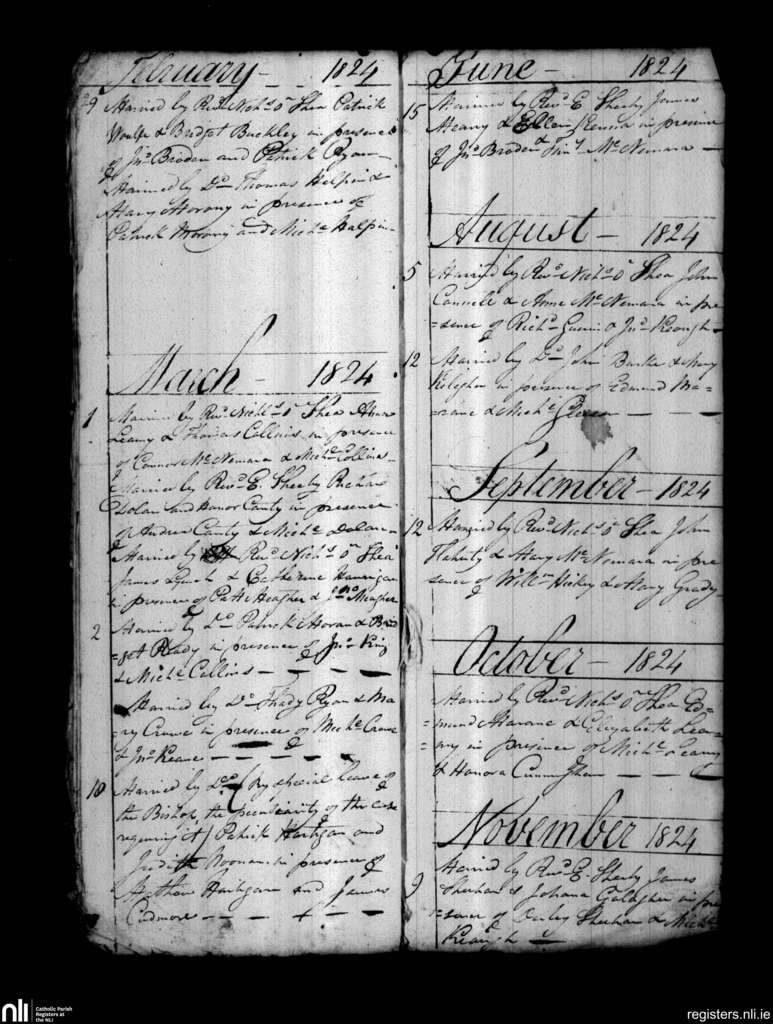 February - 1824
29 Married by Revd Nichs O Shea Patrick
Woulfe & Bridget Buckley in presence
of Jno Broden and Patrick Ryan
Married by Do Thomas Halpin &
Mary Morony in presence of
Patrick Morony and Michl Halpin
March - 1824
1 Married by Revd Nichs O Shea
Leamy & Thomas Collins in presence
of Connor McNemara & Michl Collins
Married by Revd E Sheehy Richard
Dolan and Honor Canty in presence
of Andrew Canty & Michl Dolan
Married by Revd Nichs O Shea
James Lynch & Catherine Hannigan
in presence of Patt Meagher & Jno Meagher
2 Married by Do Patrick Horan & Brid
=get Ready in presence of Jno King
& Michl Collins - - - -
Married by Do Thady Ryan & Ma
=ry Crowe in presence of Michl Crowe
& Jno Keane - - - - -
10 Married by Do (By special leave of
the Bishop, the peculiarity of the case
requiring it) Patrick Hartigan and
Judith Noonan in presence of
Arthur Hartigan and James
Cudmore - - - + - -
June - 1824
15 Married by Revd E Sheehy James
Meany & Ellen in presence
of Jno Broden & Timy McNemara -
August - 1824
5 Married by Revd Nichs O Shea John
Connell & Anne McNemara in pre
=sence of Richd Guerin & Jno Keough
12 Married by Do John Burke & Mary
Kelegher in presence of Edmund Ma=
=rane & Michl Gleeson - - -
September - 1824
12 Married by Revd Nichs O Shea John
Flaherty & Mary McNemara in pre
sence of Willm Hickey & Mary Grady
October - 1824
Married by Revd Nichs O Shea Ed=
=mund Marane & Elizabeth Lea=
=my in presence of Michl Leamy
& Honora Cunningham - - -
November 1824
9 Married by Revd E Sheehy James
Sheehan & Johana Galagher in pre
=sence of Sheehan & Michl
Keough -
nli
Catholic Parish
Registers at
the NLI
registers.nli.ie